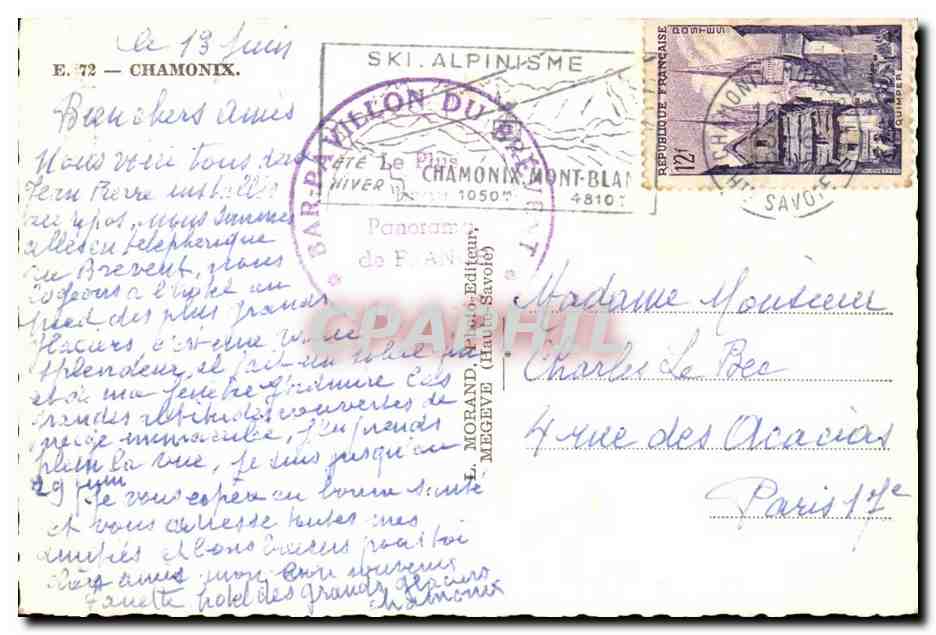 le 13 juin
E. 72 — CHAMONIX.
Bien chers amis
Nous voici tous dans
Jean Pierre installés
au repos, nous sommes
allés en téléphérique
au Brévent, nous
logeons à l'hôtel au
pied des plus grands
glaciers c'est une vraie
splendeur, il fait un soleil
et de ma fenêtre j'admire les
grandes altitudes couvertes de
neige immaculée, j'en prends
plein la vue, je suis jusqu'au
29 juin
Je vous espère en bonne santé
et vous adresse toutes mes
amitiés et bons baisers pour toi
amis mon bon souvenir
hotel des grands glaciers
Chamonix
SKI. ALPINISME
ÉTÉ
HIVER
CHAMONIX. MONT-BLAN
1050m
4810
BAR-PAVILLON DU BRÉVENT
Le Plus
Panorama
de FRANCE
REPUBLIQUE FRANÇAISE
POSTES
QUIMPER
12f
CHAMONIX
SAVOIE
L. MORAND, Photo-Editeur,
MEGÈVE (Haute-Savoie)
CPAPHIL
Madame Monsieur
Charles Le Bec
4 rue des Acacias
Paris 17e